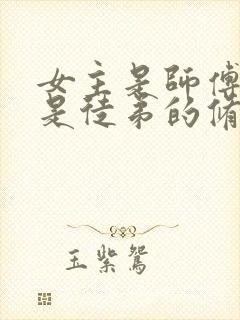 女主是師傅
是徒弟的脩
玉紫鴛